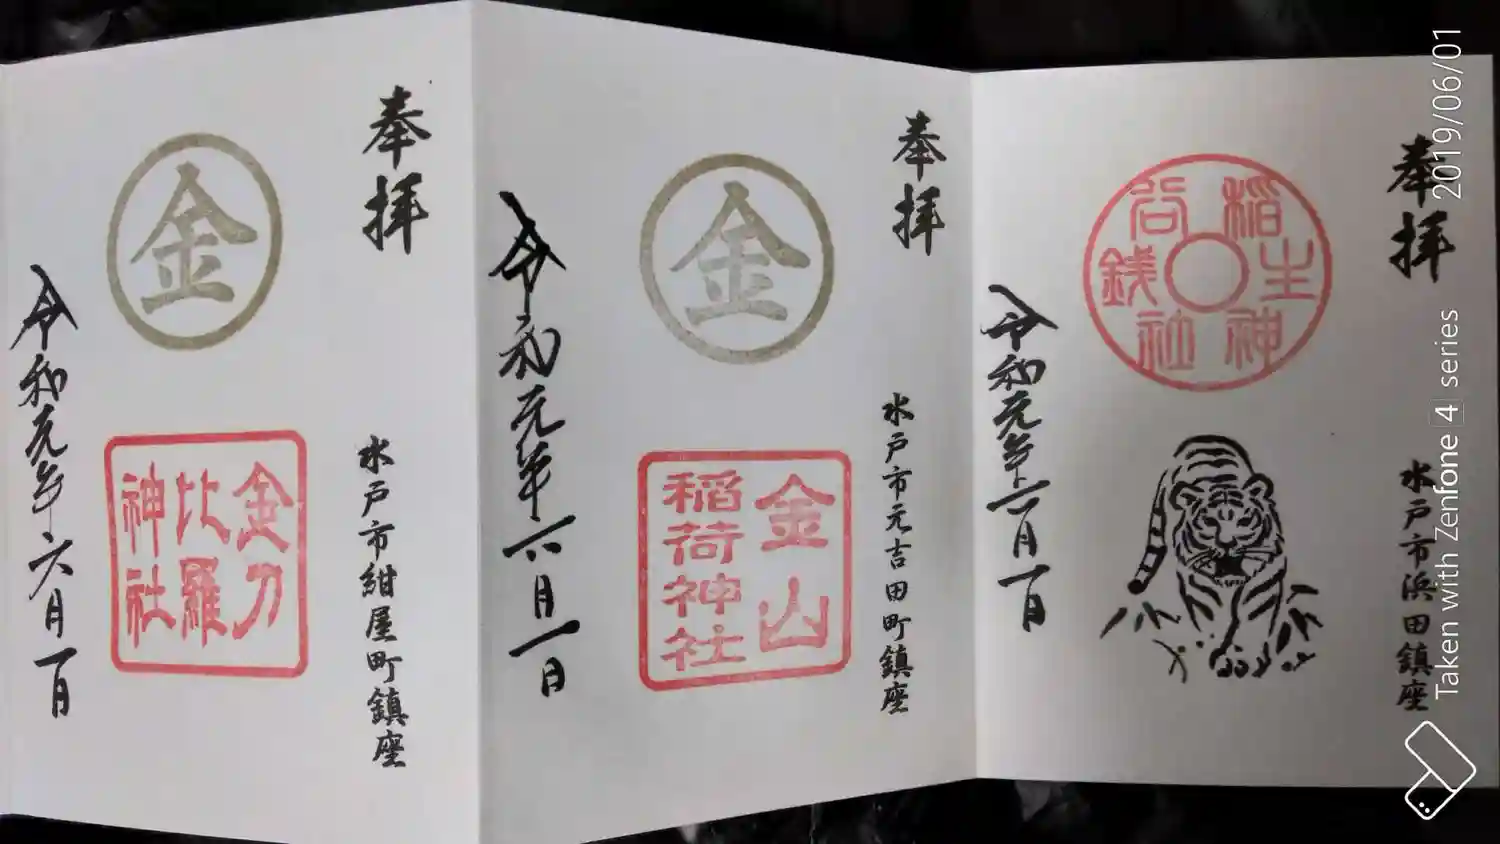 奉拝
水戸市浜田鎮座
銭谷稲生神社
令和元年六月一日
奉拝
水戸市元吉田町鎮座
金
金山
稲荷神社
令和元年六月一日
奉拝
水戸市紺屋町鎮座
金
金刀
比羅
神社
令和元年六月一日
Taken with Zenfone 4 series 2019/06/01